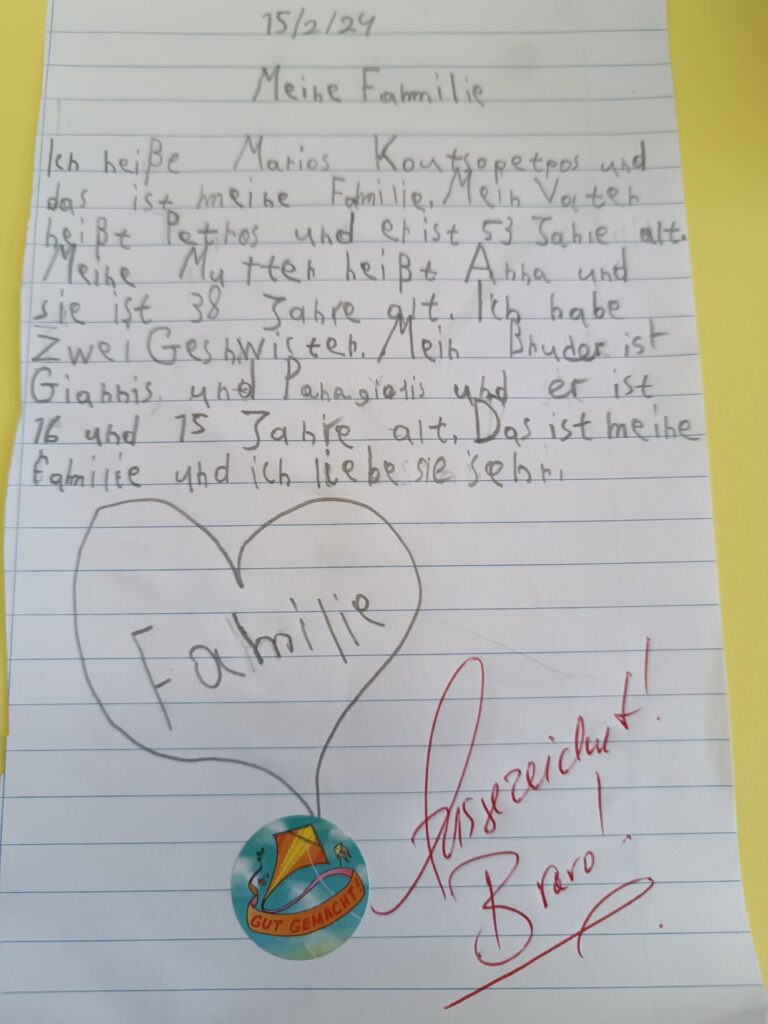 15/2/24
Meine Fammilie
Ich heiße Marios Koutsopetros und
das ist meine Familie. Mein Vater
heißt Petros und er ist 53 Jahre alt.
Meine Mutter heißt Anna und
sie ist 38 Jahre alt. Ich habe
Zwei Geshwister. Mein Bruder ist
Giannis und Panagiotis und er ist
16 und 15 Jahre alt. Das ist meine
Familie und ich liebe sie sehr.
Familie
Ausgezeichnet!
Bravo!
GUT GEMACHT!